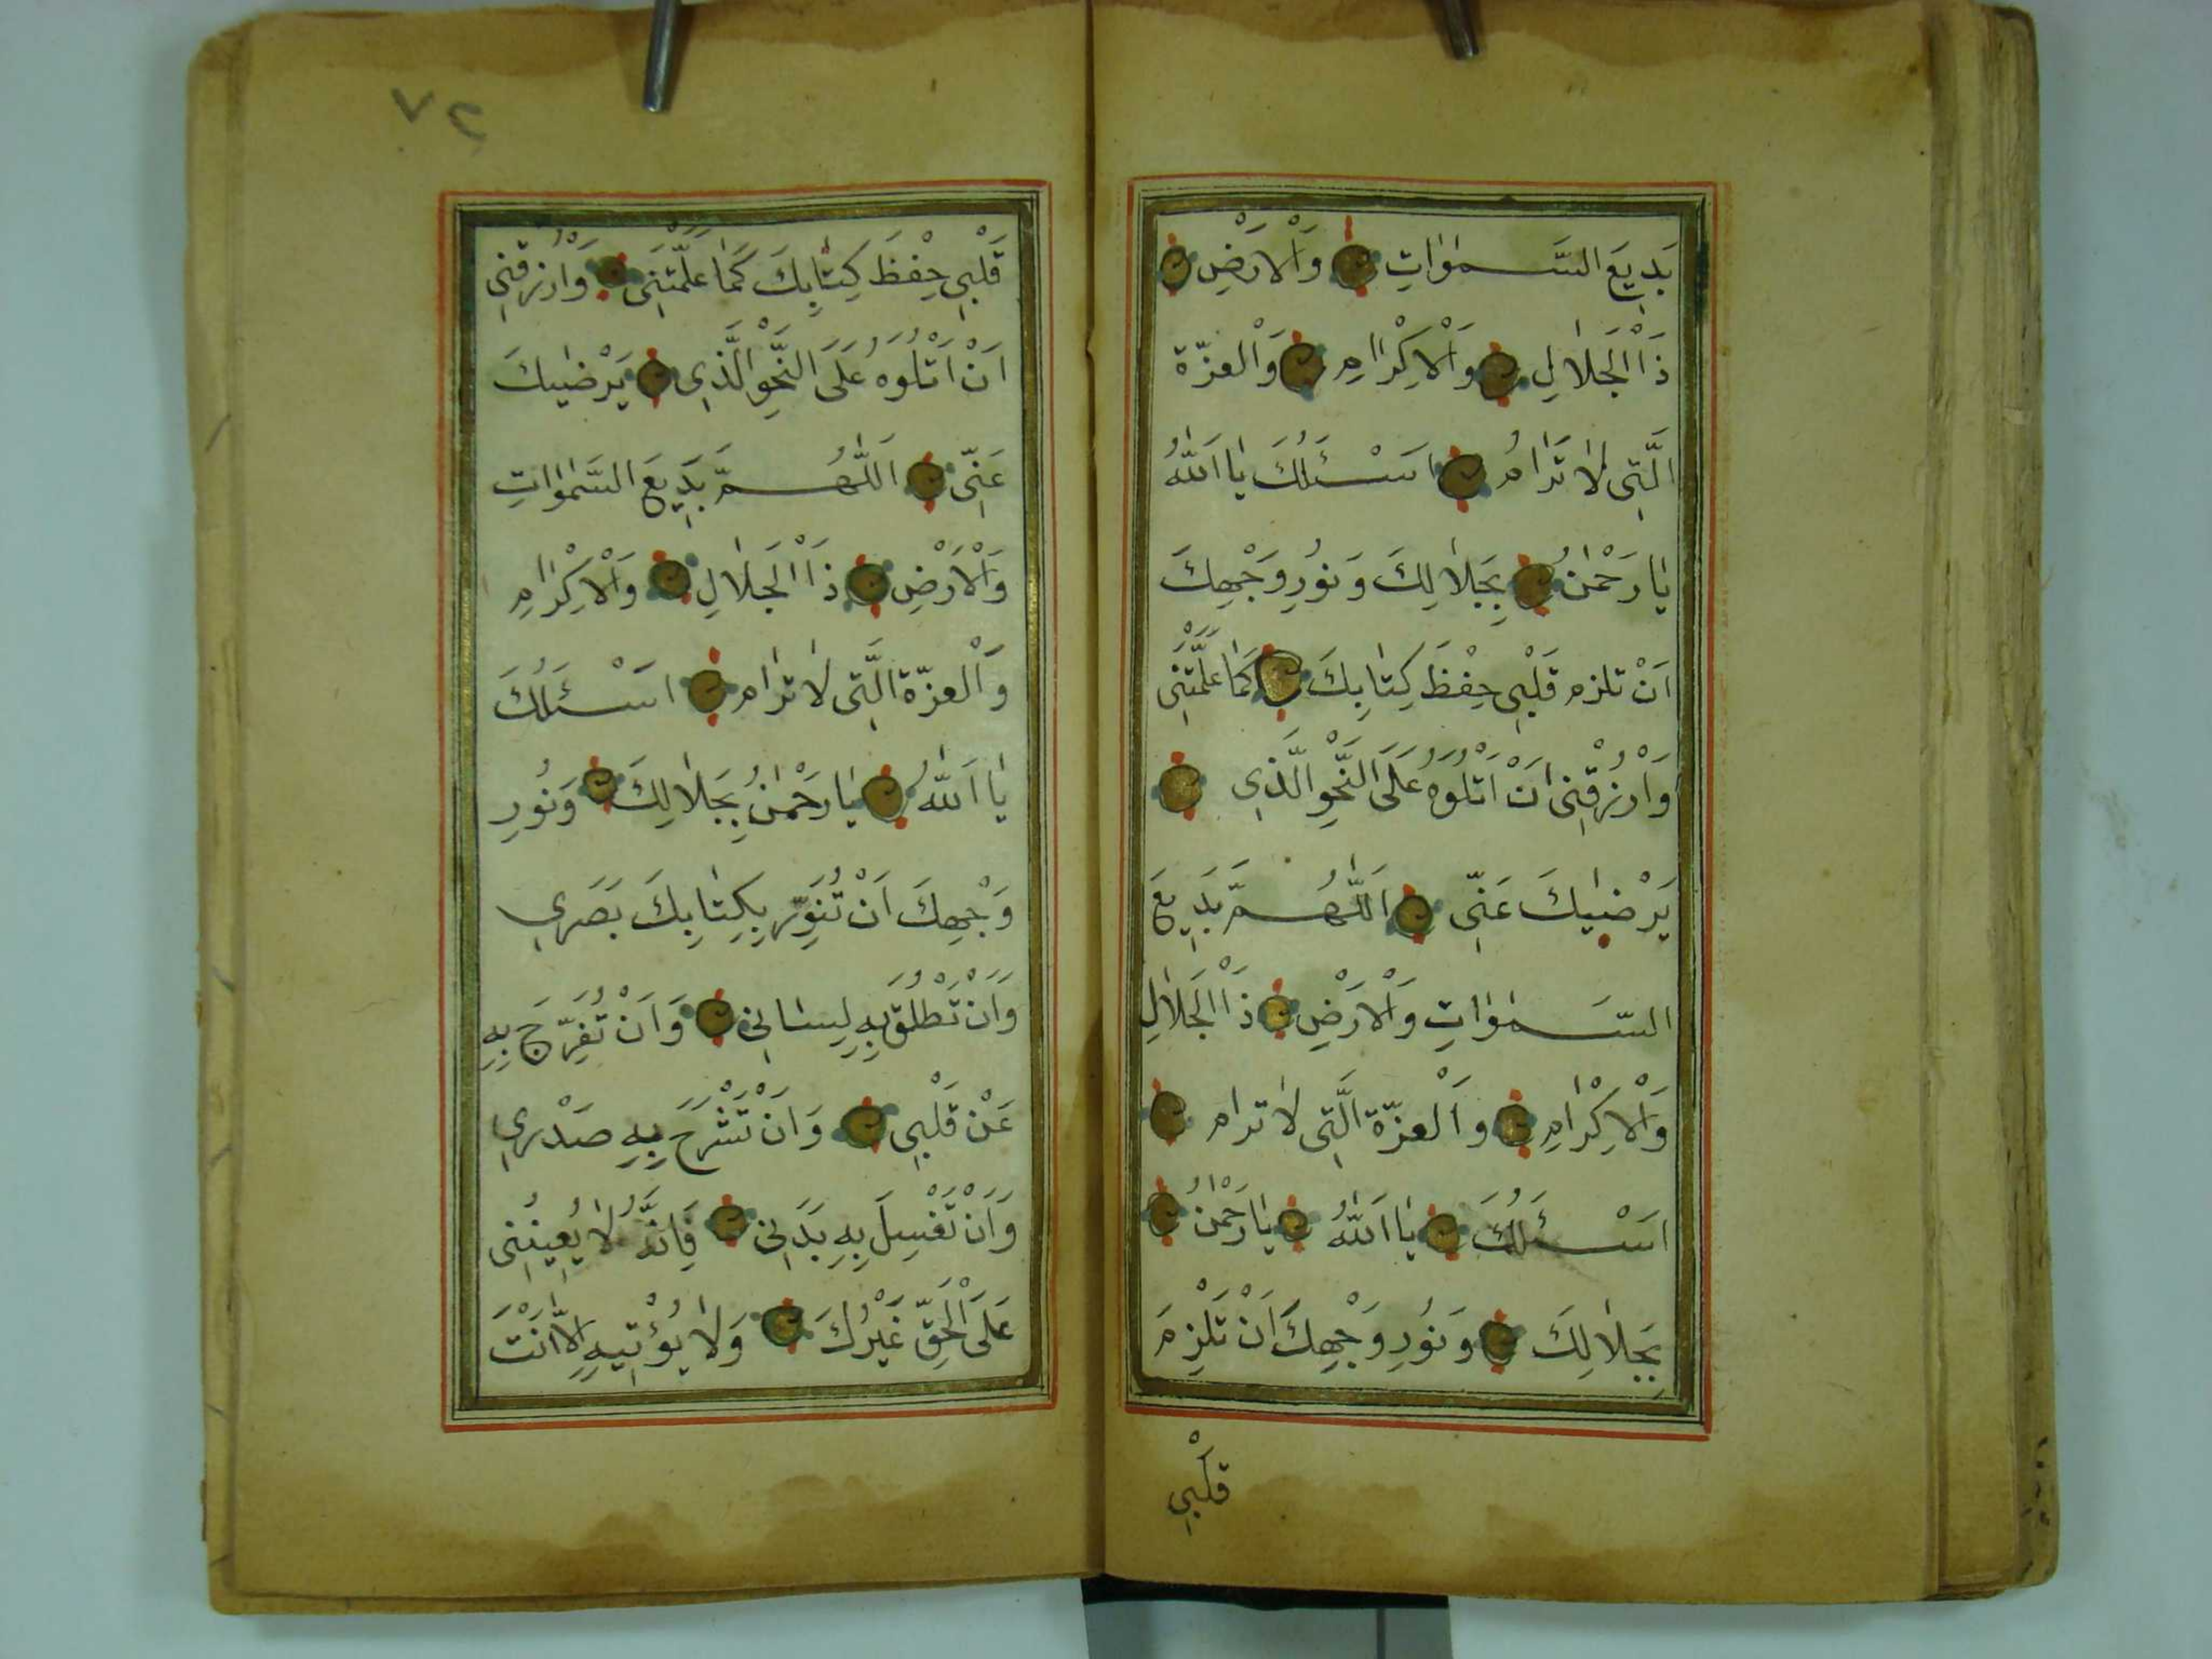 بَدِيعَ السَّمٰوٰاتِ وَالْاَرْضِ
ذَا الْجَلٰالِ وَالْاِكْرٰامِ وَالْعزّة
الَّتِى لٰا تَرٰامُ اَسْـَٔلُكَ يٰا اَللّٰهُ
يٰا رَحْمٰنُ بِجَلٰالِكَ وَنُورِ وَجْهِكَ
اَنْ تلزم قَلْبِى حِفْظَ كِتٰابِكَ كَمٰا عَلَّمْتَنِى
وَارْزُقْنِى اَنْ اَتْلُوَهُ عَلَى النَّحْوِ الَّذِى
يَرْضٰيكَ عَنِّى اَللّٰهُمَّ بَدِيعَ
السَّمٰوٰاتِ وَالْاَرْضِ ذَا الْجَلٰالِ
وَالْاِكْرٰامِ وَالْعزّة الَّتِى لٰا ترام
اَسْـَٔلُكَ يٰا اَللّٰهُ يٰا رَحْمٰنُ
بِجَلٰالِكَ وَنُورِ وَجْهِكَ اَنْ تَلْزِمَ
قَلْبِى
٧٢
قَلْبِى حِفْظَ كِتٰابِكَ كَمٰا عَلَّمْتَنِى وَارْزُقْنِى
اَنْ اَتْلُوَهُ عَلَى النَّحْوِ الَّذِى يَرْضٰيكَ
عَنِّى اَللّٰهُمَّ بَدِيعَ السَّمٰوٰاتِ
وَالْاَرْضِ ذَا الْجَلٰالِ وَالْاِكْرٰامِ
وَالْعزّة الَّتِى لٰا ترٰام اَسْـَٔلُكَ
يٰا اَللّٰهُ يٰا رَحْمٰنُ بِجَلٰالِكَ وَنُورِ
وَجْهِكَ اَنْ تُنَوِّرَ بِكِتٰابِكَ بَصَرِى
وَاَنْ تَطْلُقَ بِهِ لِسٰانِى وَاَنْ تُفَرِّجَ بِهِ
عَنْ قَلْبِى وَاَنْ تَشْرَحَ بِهِ صَدْرِى
وَاَنْ تَغْسِلَ بِهِ بَدَنِى فَاِنَّهُ لٰا يُعِينُنِى
عَلَى الْحَقِّ غَيْرُكَ وَلٰا يُؤْتِيهِ اِلّٰا اَنْتَ